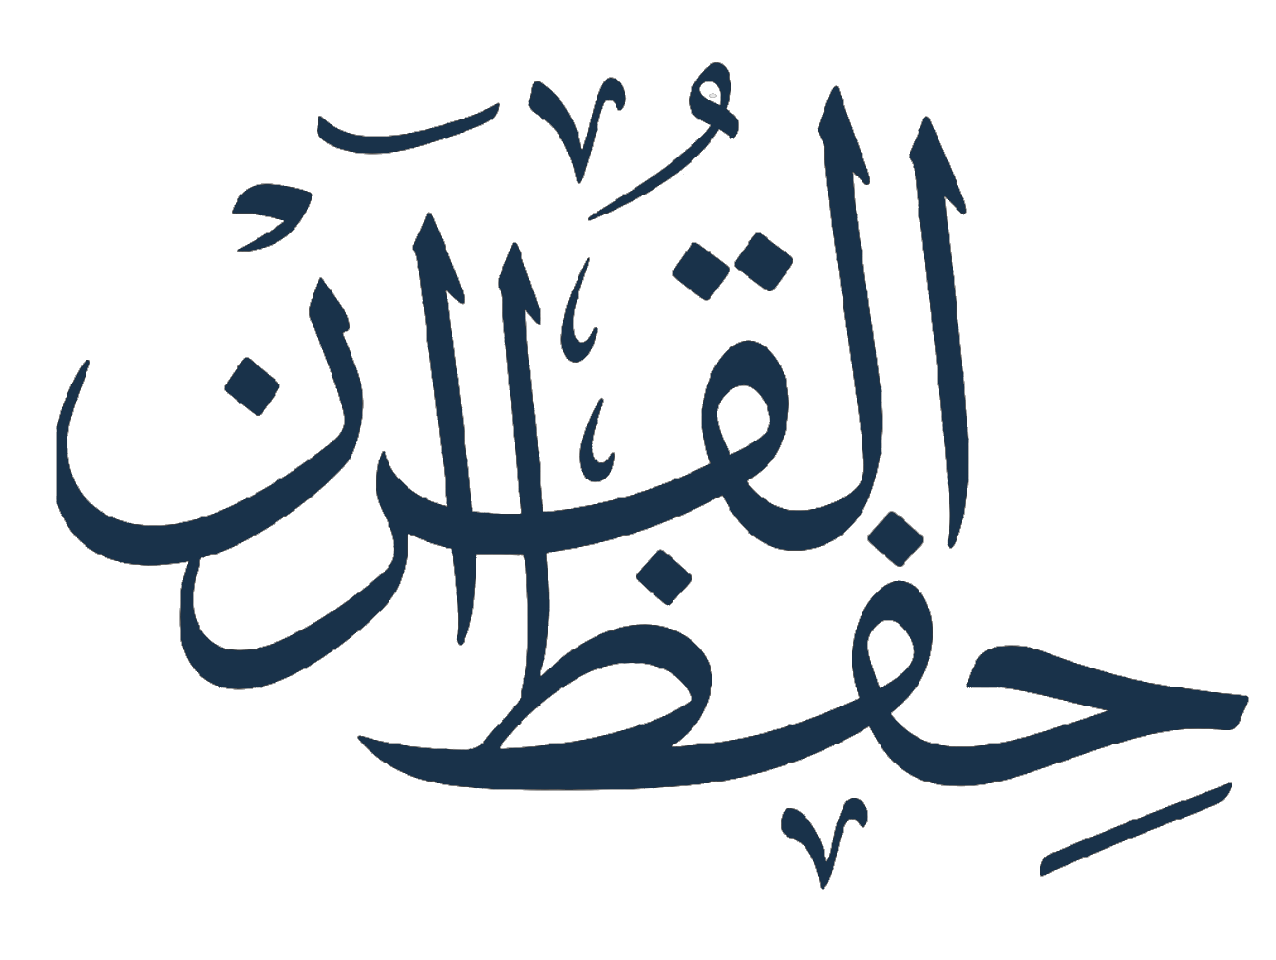 حِفظ القُرآنْ